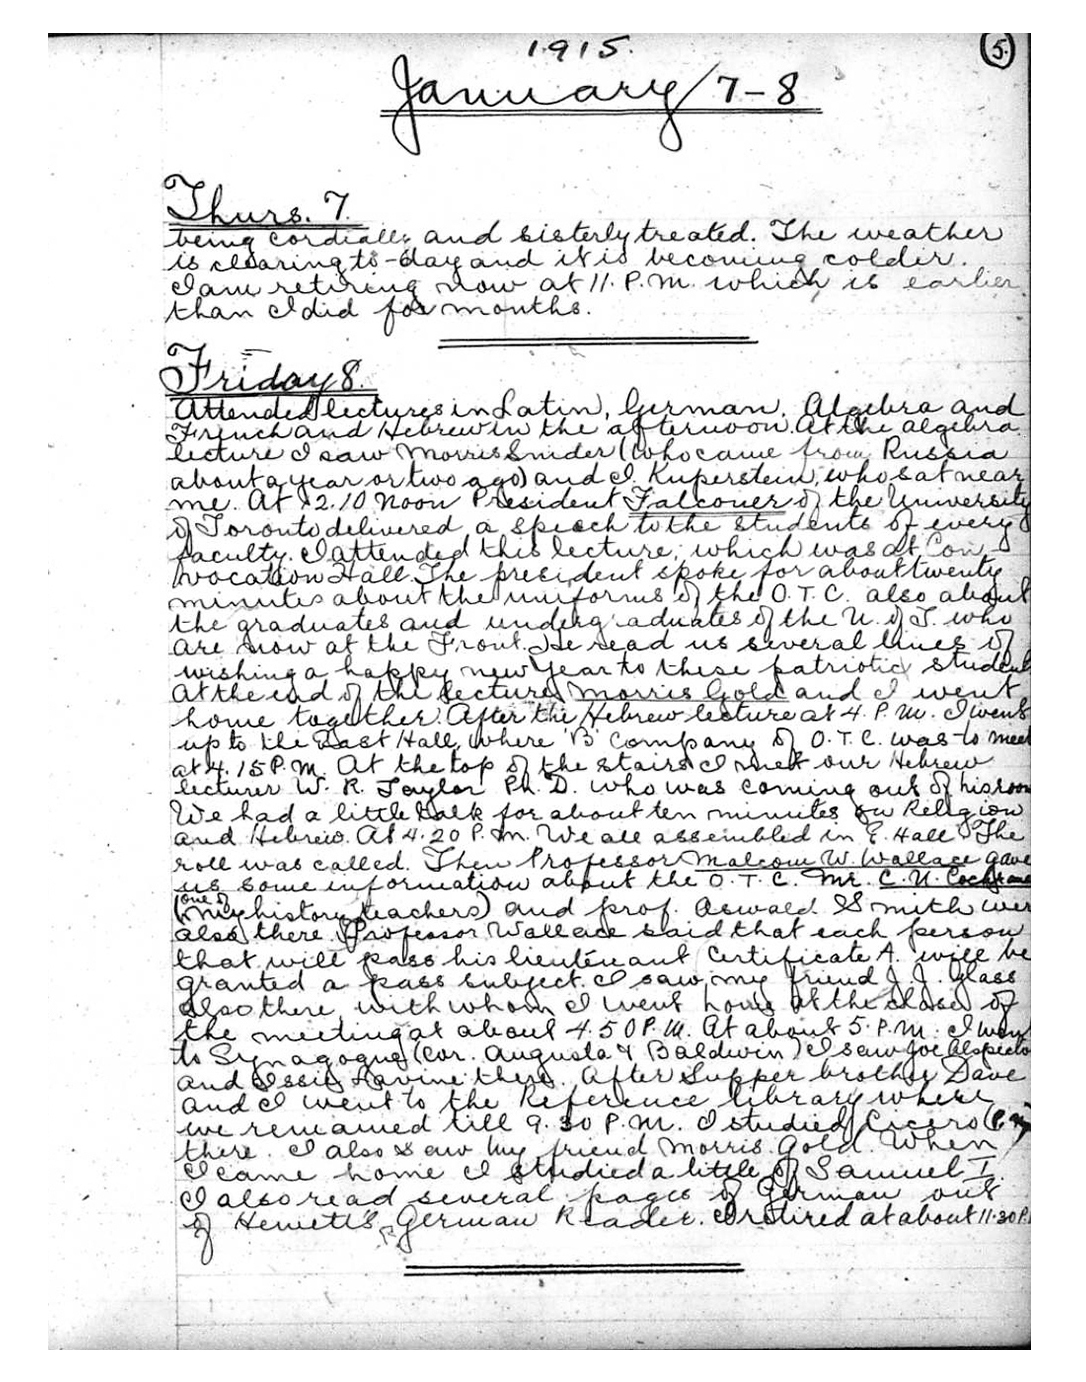 1915.
5.
January 7-8
Thurs. 7.
being cordially and sisterly treated. The weather
is clearing to-day and it is becoming colder.
I am retiring now at 11. P.M. which is earlier
than I did for months.
Friday 8.
Attended lectures in Latin, German, Algebra and
French and Hebrew in the afternoon. At the algebra
lecture I saw Morris Snider (who came from Russia
about a year or two ago) and I. Kuperstein, who sat near
me. At 12.10 Noon President Falconer of the University
of Toronto delivered a speech to the students of every
faculty. I attended this lecture, which was at Con-
vocation Hall. The president spoke for about twenty
minutes about the uniforms of the O.T.C. also about
the graduates and undergraduates of the U. of T. who
are now at the Front. He read us several lines of
wishing a happy new year to these patriotic student
At the end of the lecture, Morris Gold and I went
home together. After the Hebrew lecture at 4. P.M. I went
up to the East Hall, where 'B' Company of O.T.C. was to meet
at 4.15 P.M. At the top of the stairs I met our Hebrew
lecturer W. R. Taylor Ph. D. who was coming out of his room
We had a little talk for about ten minutes on Religion
and Hebrew. At 4.20 P.M. We all assembled in E. Hall. The
roll was called. Then Professor Malcom W. Wallace gave
us some information about the O.T.C. Mr. C. N. Cochrane
(one of my history teachers) and prof. Aswald Smith wer
also there. Professor Wallace said that each person
that will pass his lieutenant Certificate A. will be
granted a pass subject. I saw my friend J. J. Glass
also there, with whom I went home at the close of
the meeting at about 4.50 P.M. At about 5. P.M. I went
to Synagogue (cor. Augusta & Baldwin) I saw Joe Alspector
and Issie Lavine there. After Supper brother Dave
and I went to the Reference library where
we remained till 9.30 P.M. I studied Cicero
there. I also saw my friend Morris Gold. When
I came home I studied a little of Samuel I
I also read several pages of German out
of Hewett's German Reader. I retired at about 11.30 P.